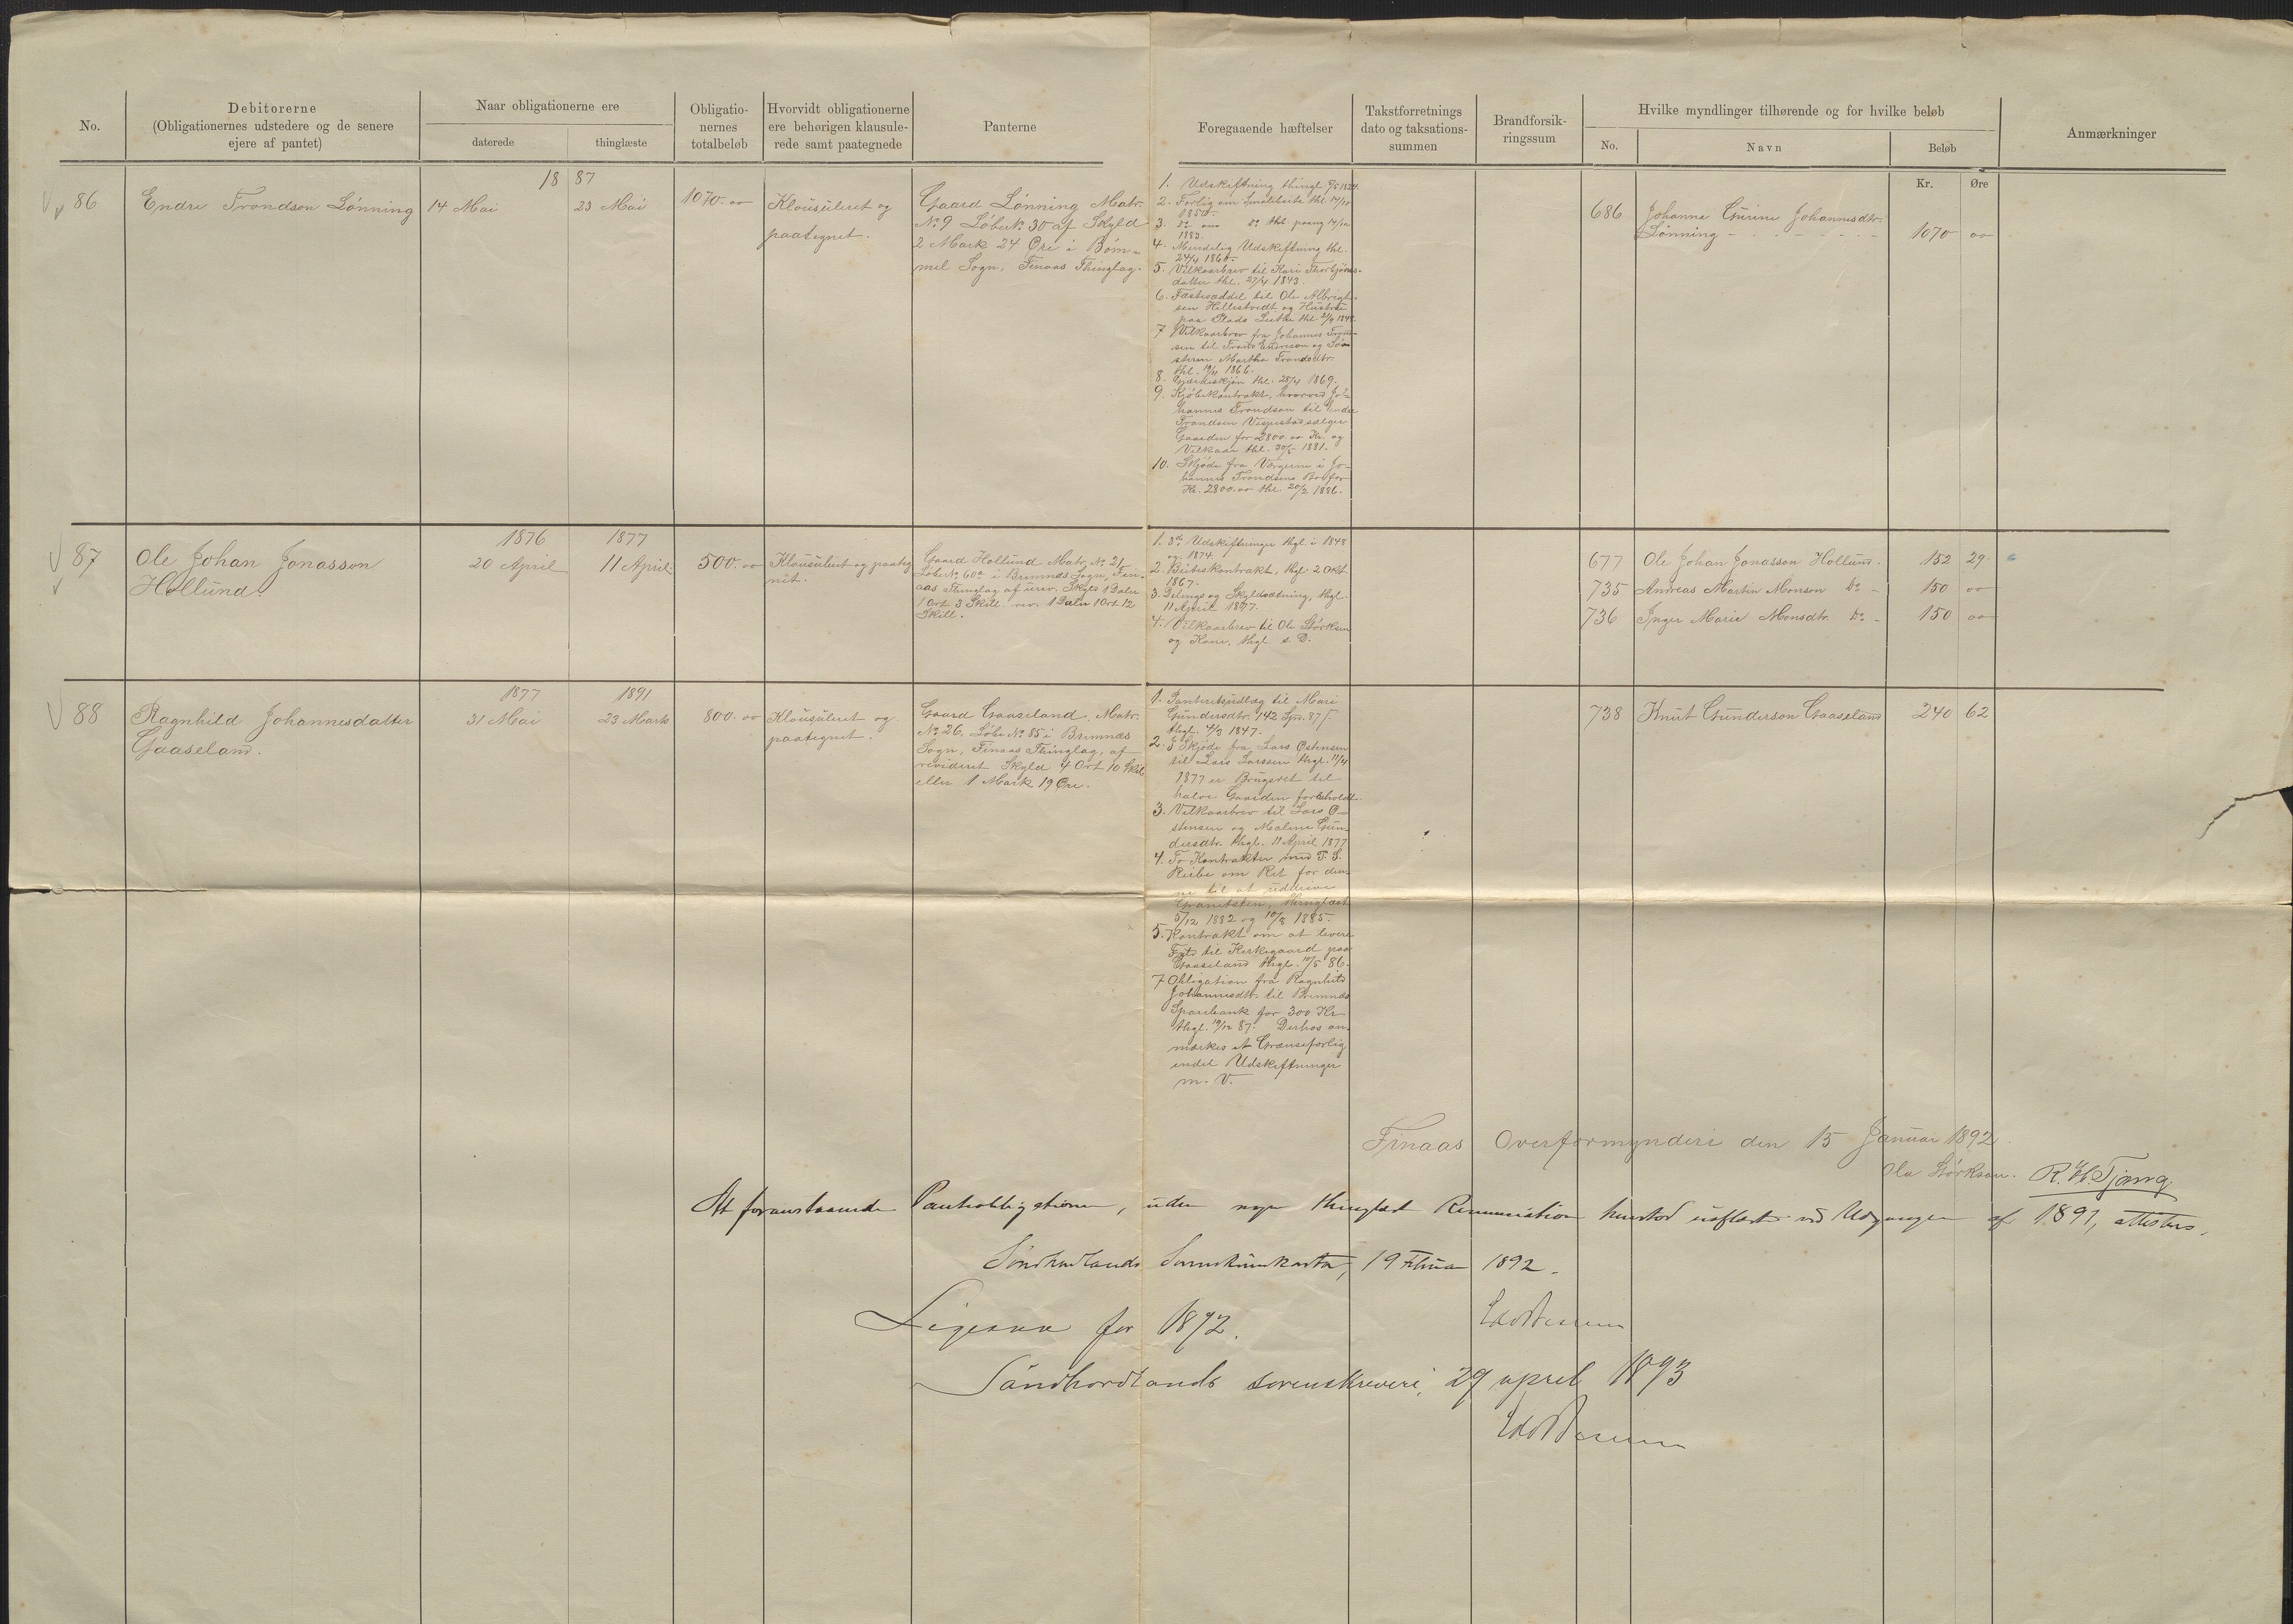 No.
Debitorerne
(Obligationernes udstedere og de senere
ejere af pantet)
Naar obligationerne ere
daterede
thinglæste
Obligatio-
nernes
totalbeløb
Hvorvidt obligationerne
ere behørigen klausule-
rede samt paategnede
Panterne
Foregaaende hæftelser
Takstforretnings
dato og taksations-
summen
Brandforsik-
ringssum
Hvilke myndlinger tilhørende og for hvilke beløb
No.
Navn
Beløb
Anmærkninger
Kr.
Øre
18 87
86
Endre Trondson Lønning
14 Mai
23 Mai
1070. 00
Klausuleret og
paategnet.
Gaard Lønning Matr.
No 9 Løbe No 30 af Skyld
2 Mark 24 Øre i Bøm-
mel Sogn, Finaas Thinglag.
1. Udskiftning thingl.
2. Forlig om
1850.
3.
1883.
4. Mindelig Udskiftning thl.
24/4 1860.
5. Vilkaarbrev til Kari Thorbjørns-
datter thl. 27/4 1843.
6. Fæsteseddel til Ole Albrigt-
sen Hellestvedt og Hustru
paa Plads
7 Vilkaarbrev fra Johannes Trond-
sen til Trond Endreson og Sø-
steren Martha Trondsdtr.
thl. 1866.
8. Gjærdeskjøn thl. 28/4 1869.
9. Kjøbekontrakt, hvorved Jo-
hannes Trondson til Endre
Trondsen Vespestad sælger
Gaarden for 2800.00 Kr. og
Vilkaar thl. 30/5 1881.
10. Skjøde fra Værgerne i Jo-
hannes Trondsens Bo for
Kr. 2800.00 thl. 20/2 1886.
686
Johanna Gurine Johannesdtr.
Lønning - - - - - - -
1070 00
87
Ole Johan Jonasson
Hollund.
1876
20 April
1877
11 April.
500. 00
Klausuleret og paateg-
net.
Gaard Hollund Matr. No 21
Løbe No 60a i Bremnæs Sogn, Fin-
aas Thinglag af urev. Skyld 1 Daler
1 Ort 3 Skill. rev. 1 Daler 1 Ort 12
Skill.
1. 3de Udskiftninger thgl. i 1848
og 1874.
2. Beitekontrakt, thgl. 2 Okt.
1867.
3. Delings og Skyldsætning, thgl.
11 April 1877.
4. Vilkaarbrev til Ole Størksen
og Kone, thgl. s. D.
677 Ole Johan Jonasson Hollund. 152 29
735 Andreas Martin Monson Do - 150 00
736 Inger Marie Monsdtr. Do - 150 00
88
Ragnhild Johannesdatter
Gaaseland.
1877
31 Mai
1891
23 Marts
800. 00
Klausuleret og
paategnet.
Gaard Gaaseland, Matr.
No 26. Løbe No 85 i Bremnæs
Sogn, Finaas Thinglag, af
revideret Skyld 4 Ort 10 Skil
eller 1 Mark 19 Øre.
1. Panteretsudlæg til Mari
Gundersdtr. 142 Spd. 87 ʃ
thgl. 4/3 1847.
2. I Skjøde fra Lars Østensen
til Lars Larssen thgl. 11/4
1877 er Brugsret til
halve Gaarden forbeholdt.
3. Vilkaarbrev til Lars Ø-
stensen og Malene Gun-
dersdtr. thgl. 11 April 1877
4. To Kontrakter med T. S.
om Ret for den-
ne til at uddrive
Granitsten, thinglæst
5/12 1882 og 10/8 1885.
5. Kontrakt om at levere
til Kirkegaard paa
Gaaseland thgl. 10/5 86.
7 Obligation fra Ragnhild
Johannesdtr. til Bremnæs
Sparebank for 300 Kr.
thgl. 19/12 87. Derhos an-
mærkes et Grænseforlig
endel Udskiftninger
m. V.
738 Knut Gunderson Gaaseland 240 62
Finaas Overformynderi den 15 Januar 1892.
Ola Størkson. R. H. Tjong.
At foranstaaende Pantobligationer, uden nogen thinglæst Renunciation henstod uaflæst ved Udgangen af 1891, attesteres.
Søndhordlands Sorenskriverkontor, 19 Februar 1892.
Ligesaa for 1892.
Søndhordlands sorenskriveri, 29 april 1893